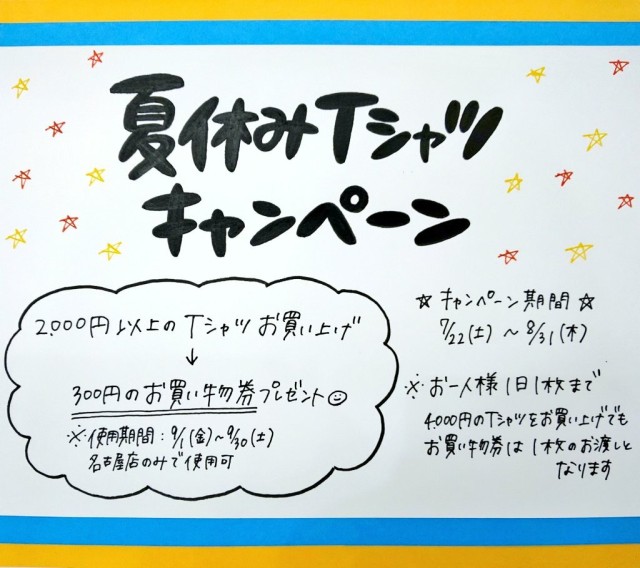 夏休みTシャツ
キャンペーン
2,000円以上のTシャツお買い上げ
↓
300円のお買い物券プレゼント☺
※使用期間：9/1(金)～9/30(土)
名古屋店のみで使用可
☆キャンペーン期間☆
7/22(土)～8/31(木)
※お一人様1日1枚まで
4000円のTシャツをお買い上げでも
お買い物券は1枚のお渡しと
なります